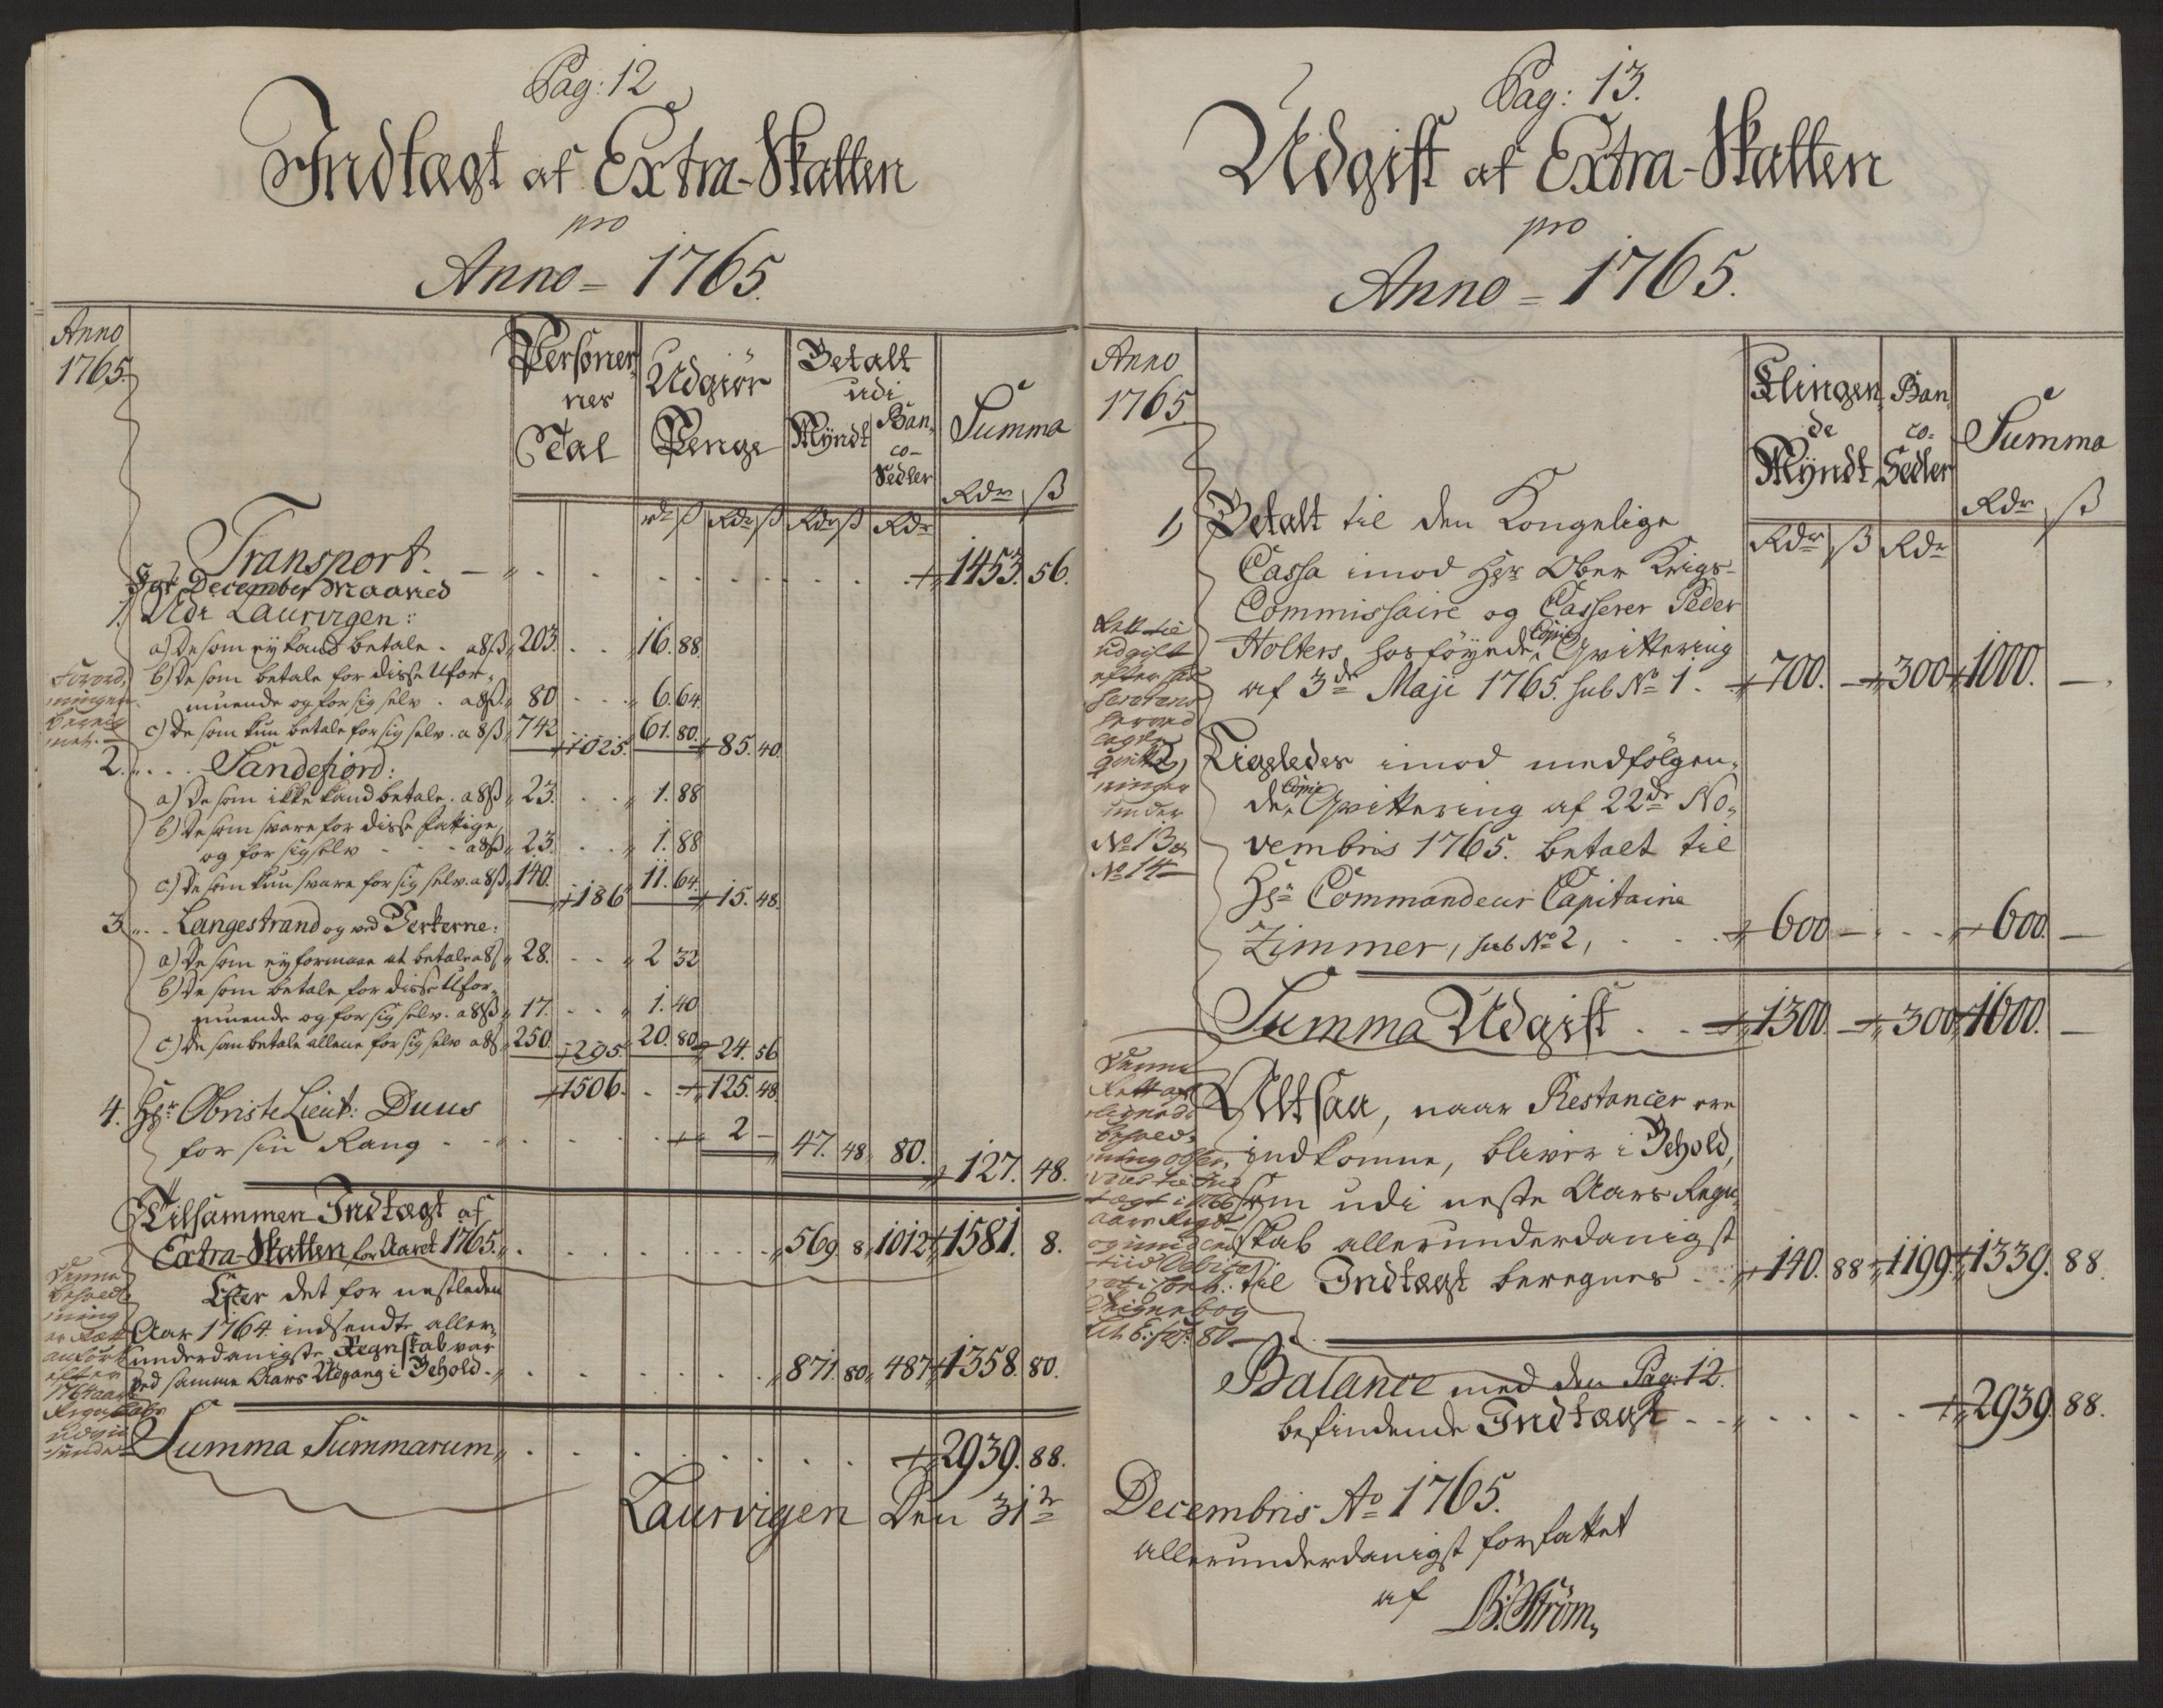 Pag: 12
Indtægt af Extra-Skatten
pro
Anno = 1765.
Anno
1765.
Personer,
nes
Tal
Udgiør
Penge
Betalt
udi
Myndt
Ban,
co-
Sedler
Summa
Rdr ß
rdr ß Rdr ß Rdr ß Rdr
Transport. 1453. 56.
For December Maaned
1. Udi Laurvigen:
a) De som ey kand betale. a 8 ß 203. 16. 88.
b) De som betale for disse Ufor,
muende og for sig selv. a 8 ß. 80 6. 64.
c) De som kun betale for sig selv. a 8 ß 742 1025. 61. 80. 85. 40.
2. Sandefiord:
a) De som ikke kand betale. a 8 ß 23. 1. 88
b) De som svare for disse fattige,
og for sig selv a 8 ß 23. 1. 88
c) De som kun svare for sig selv. a 8 ß 140. 186 11. 64. 15. 48.
3. Langestrand og ved Verkerne:
a) De som ey formaar at betale a 8 ß 28. 2 32
b) De som betale for disse Ufor,
muende og for sig selv. a 8 ß 17. 1. 40
c) De som betale allene for sig selv a 8 ß 250. 295. 20. 80. 24. 56
1506. 125. 48.
4. Hr Obriste Lieut: Duus
for sin Rang 2 — 47. 48. 80. 127. 48.
Tilsammen Indtægt af
Extra-Skatten for Aaret 1765. 569. 8. 1012 1581. 8.
Efter det for nestleden
Aar 1764 indsendte aller,
underdanigste Regnskab var
ved samme Aars Udgang i Behold. 871. 80. 487 1358. 80.
Summa Summarum 2939. 88.
Laurvigen Den 31te
Pag: 13.
Udgift af Extra-Skatten
pro
Anno = 1765.
Anno
1765
Klingen,
de
Myndt
Ban,
co-
Sedler
Summa
Rdr ß
Rdr ß Rdr
1) Betalt til den Kongelige
Cassa imod Hr Ober Krigs-
Commissaire og Casserer Peder
Holters hosføyede Copie Qvittering
af 3de Maji 1765. sub No 1. 700. — 300 1000. —
2) Ligeledes imod medfølgen,
de Copie Qvittering af 22de No,
vembris 1765. betalt til
Hr Commandeur Capitaine
Zimmer, sub No 2, 600 — 600. —
Summa Udgift 1300. — 300 1600. —
Altsaa, naar Restancer ere
indkomne, bliver i Behold,
som udi neste Aars Regn,
skab allerunderdanigst
til Indtægt beregnes 140. 88 1199. 1339. 88.
Balance med den Pag: 12.
befindende Indtægt 2939. 88.
Decembris Ao 1765.
allerunderdanigst forfattet
af B: Strøm,